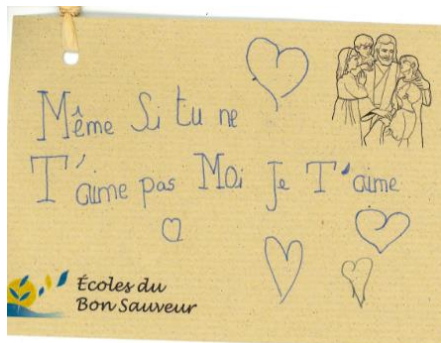 Même Si tu ne
T'aime pas Moi Je T'aime
Écoles du
Bon Sauveur